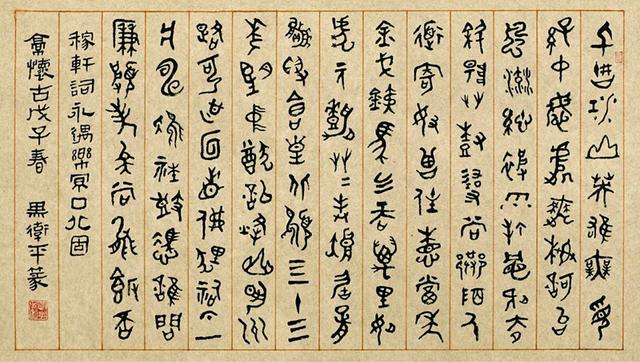 千古江山英雄無覓
孫仲謀處舞榭歌台
風流總被雨打風吹去
斜陽草樹尋常巷陌人
道寄奴曾住想當年
金戈鐵馬气吞萬里如
虎元嘉草二封狼居胥
贏得倉皇北顧四十三
年望中猶記烽火揚州
路可堪回首佛狸祠下一
片神鴉社鼓憑誰問
廉頗老矣尚能飯否
稼軒詞永遇樂京口北固
亭懷古戊子春 黑衛平篆